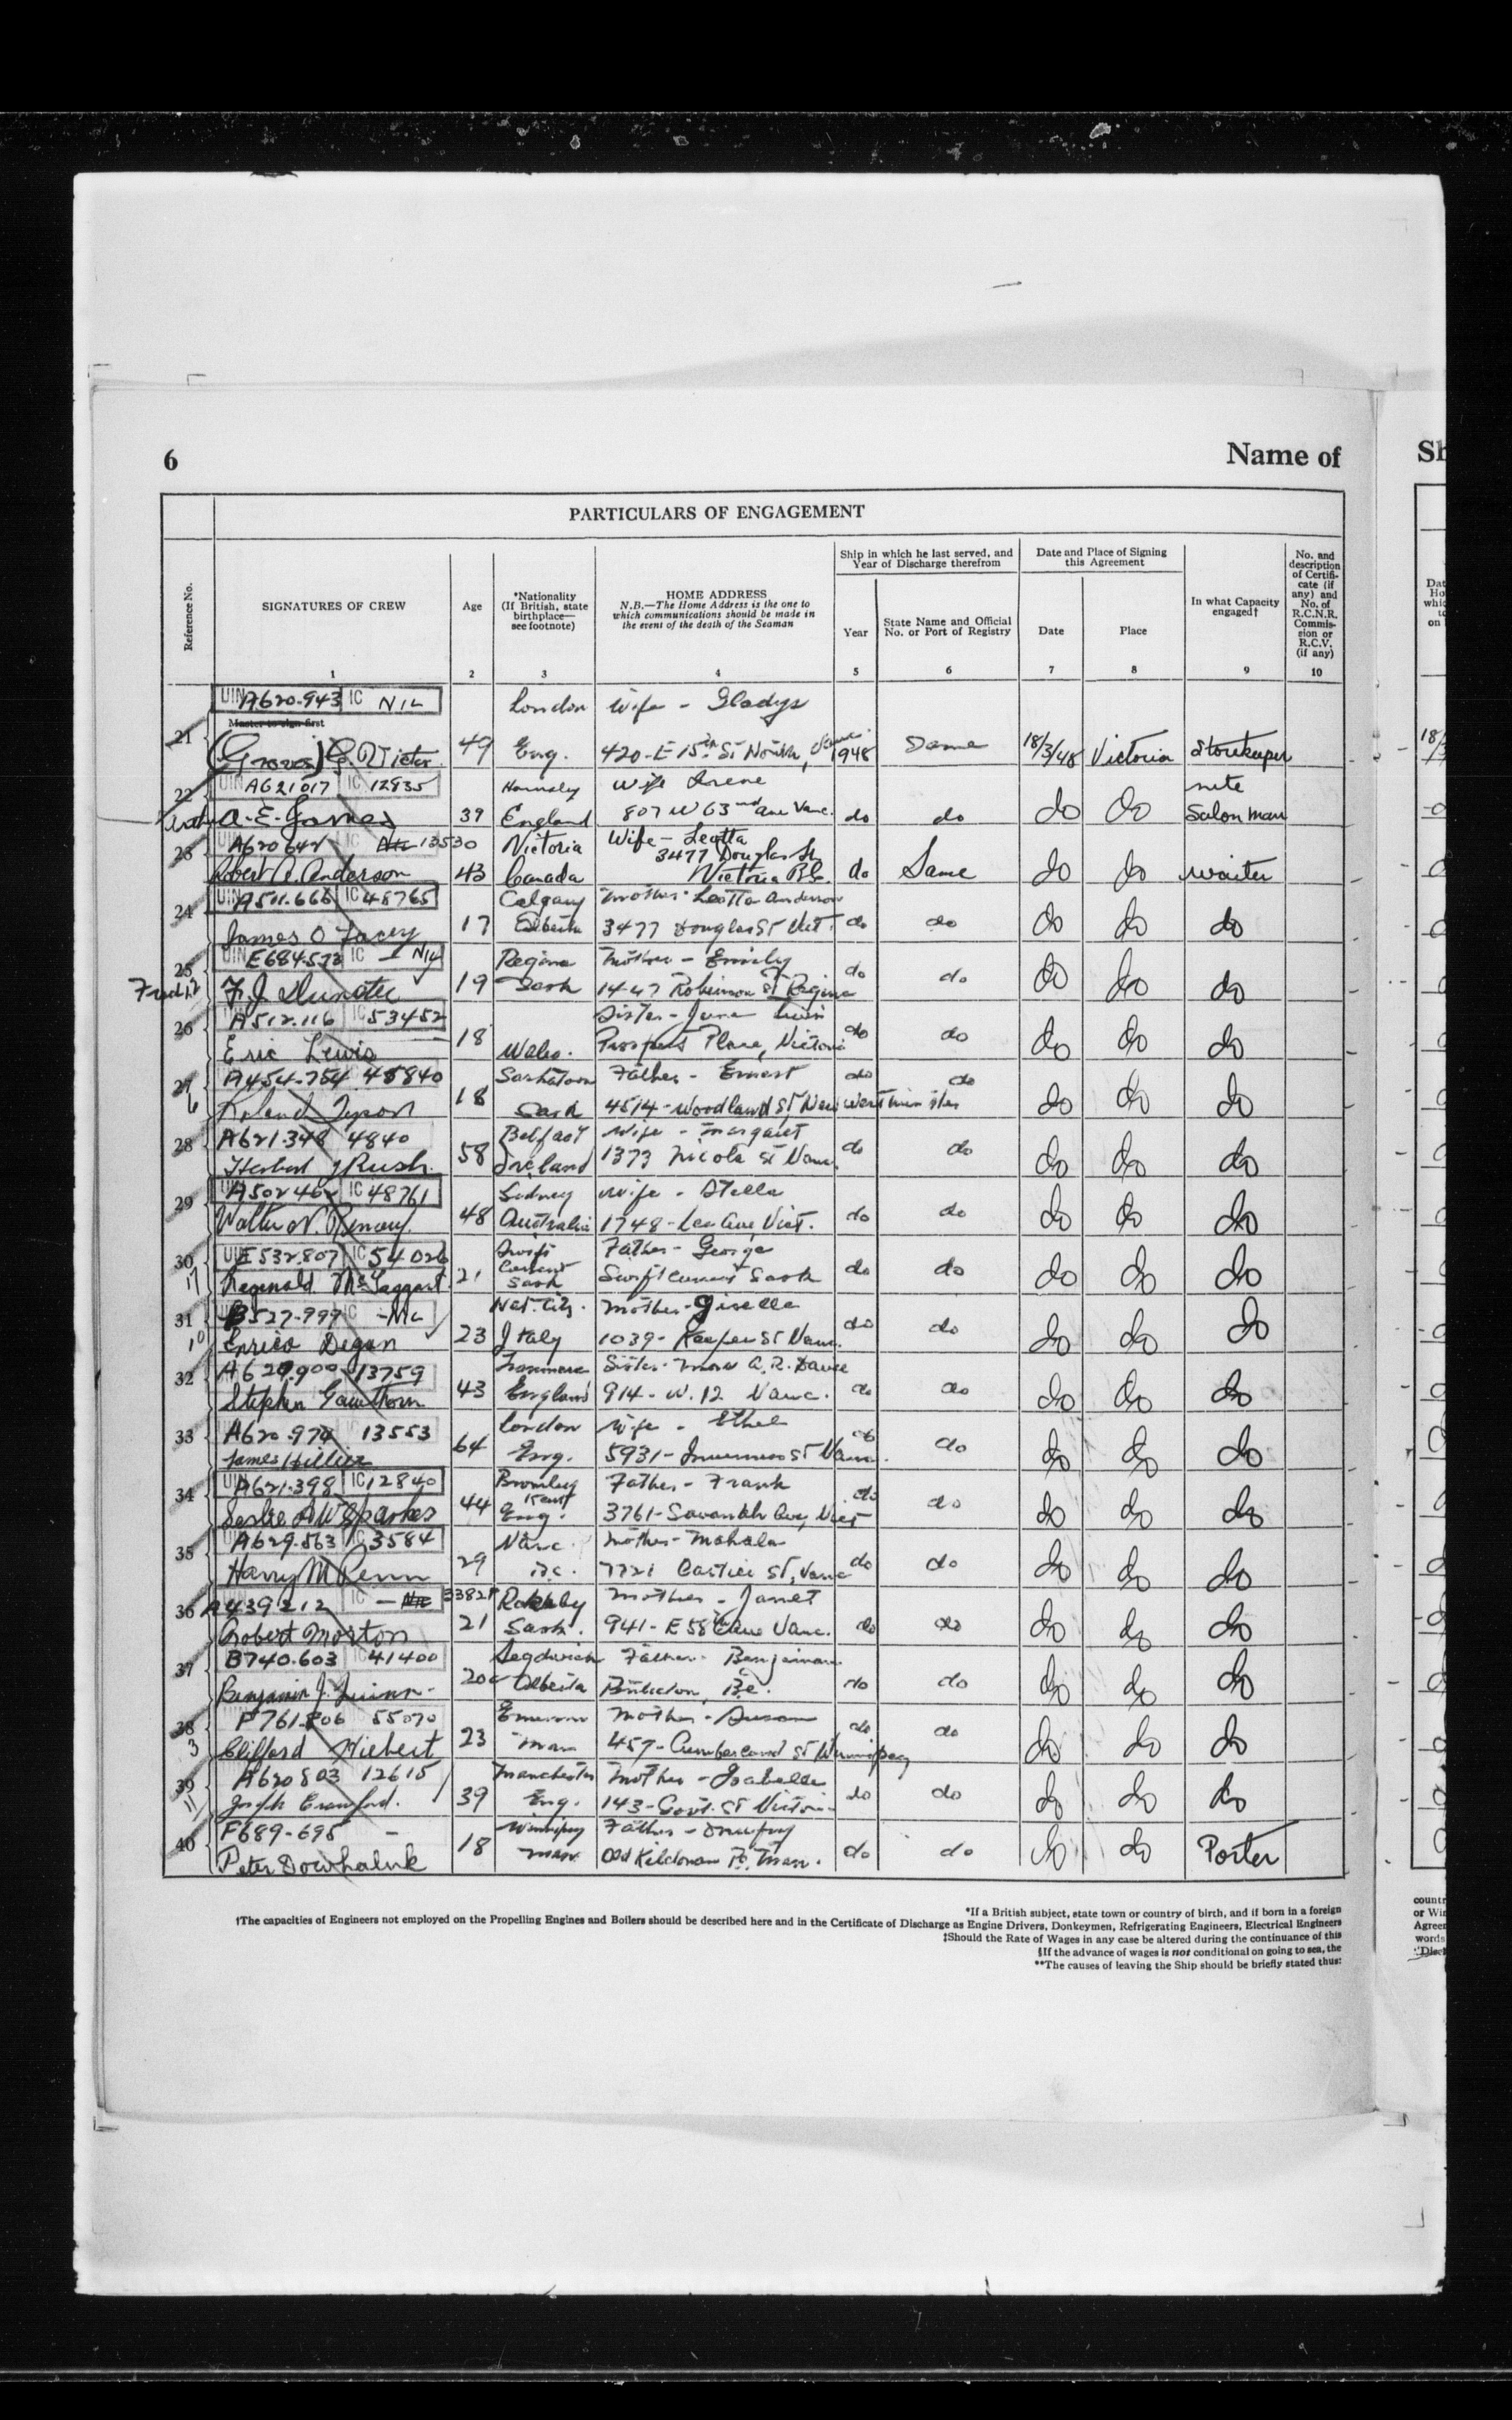 6
Name of
Sh
PARTICULARS OF ENGAGEMENT
Reference No.
SIGNATURES OF CREW
Age
*Nationality
(If British, state
birthplace—
see footnote)
HOME ADDRESS
N.B.—The Home Address is the one to
which communications should be made in
the event of the death of the Seaman
Ship in which he last served, and
Year of Discharge therefrom
Year
State Name and Official
No. or Port of Registry
Date and Place of Signing
this Agreement
Date
Place
In what Capacity
engaged†
No. and
description
of Certifi-
cate (if
any) and
No. of
R.C.N.R.
Commis-
sion or
R.C.V.
(if any)
1 2 3 4 5 6 7 8 9 10
UIN A620.943 IC NIL London Wife - Gladys
Master to sign first
21 (Groves) G. Victor 49 Eng. 420-E 15th St North, Vanc. 1948 Same 18/3/48 Victoria Storekeeper
22 UIN A621017 IC 12835 Wife Irene nite
A.E. 39 England 807 W 63rd ave Vanc. do do do do Salon man
23 A620642 Nil 13530 Victoria Wife - Leotta
3477 Douglas St
Robert A. Anderson 43 Canada Victoria B.C. do Same do do waiter
24 UIN A511.666 IC 48765 Calgary Mother - Leotta Anderson
James O Facey 17 Alberta 3477 Douglas St Vict. do do do do do
25 UIN E684.573 IC - Nil Regina Mother - Emily
F.J. 19 Sask 1447 Robinson St Regina do do do do do
26 A512.116 IC 53452 Sister - June Lewis
Eric Lewis 18 Wales. Prospect Place, Victoria do do do do do
27 A454-754 48840 Saskatoon Father - Ernest do do
6 Roland Tyson 18 Sask 4514-Woodland St, New Westminster do do do
28 A621348 4840 Belfast Wife - Margaret
Herbert J Rush. 58 Ireland 1373 Nicola St Vanc. do do do do do
29 A502462 IC 48761 Sidney Wife - Stella
Walter N. Renouf. 48 Australia 1748-Lee Ave Vict. do do do do do
30 UIN E532.807 IC 54026 Swift Father - George
Current
17 Reginald McTaggart. 21 Sask Swift Current Sask do do do do do
31 B527-999 IC -NIL Nat. Citz. Mother - Giselle
10 Enrico Degan 23 Italy 1039- Keefer St Vanc. do do do do do
32 A629.900 13759 Sister - Mrs A.R. Davie
Stephen Gawthorn 43 England 914 - W. 12 Vanc. do do do do do
33 A620.974 13553 London Wife - Ethel
James Hillier 64 Eng. 5931-Inverness St Vanc. do do do do do
34 UIN A621.398 IC 12840 Bromley Father - Frank
Kent
Leslie A W Sparkes 44 Eng. 3761-Savannah Ave, Vict do do do do do
35 A629.563 IC 3584 Vanc. Mother - Mahala
Harry M Penn 29 B.C. 7721 Cartier St, Vanc do do do do do
36 A439212 IC - Nil 33825 Rokeby Mother - Janet
Robert Morton 21 Sask. 941-E 58th Ave Vanc. do do do do do
37 B740.603 IC 41400 Sedgwick Father - Benjamin
Benjamin J. Quinn. 20 Alberta Penticton, B.C. do do do do do
38 F761.806 55070 Emerson Mother - Susan
3 Clifford Hiebert 23 Man 457-Cumberland St Winnipeg do do do do do
39 A620803 12615 Manchester Mother - Isabelle
11 Joseph Crawford. 39 Eng. 143-Govt. St Victoria do do do do do
40 F689-695 - Winnipeg Father -
Peter Dowhaluk 18 Man Old Kildonan P.O. Man. do do do do Porter
*If a British subject, state town or country of birth, and if born in a foreign
†The capacities of Engineers not employed on the Propelling Engines and Boilers should be described here and in the Certificate of Discharge as Engine Drivers, Donkeymen, Refrigerating Engineers, Electrical Engineers
‡Should the Rate of Wages in any case be altered during the continuance of this
§If the advance of wages is not conditional on going to sea, the
**The causes of leaving the Ship should be briefly stated thus: